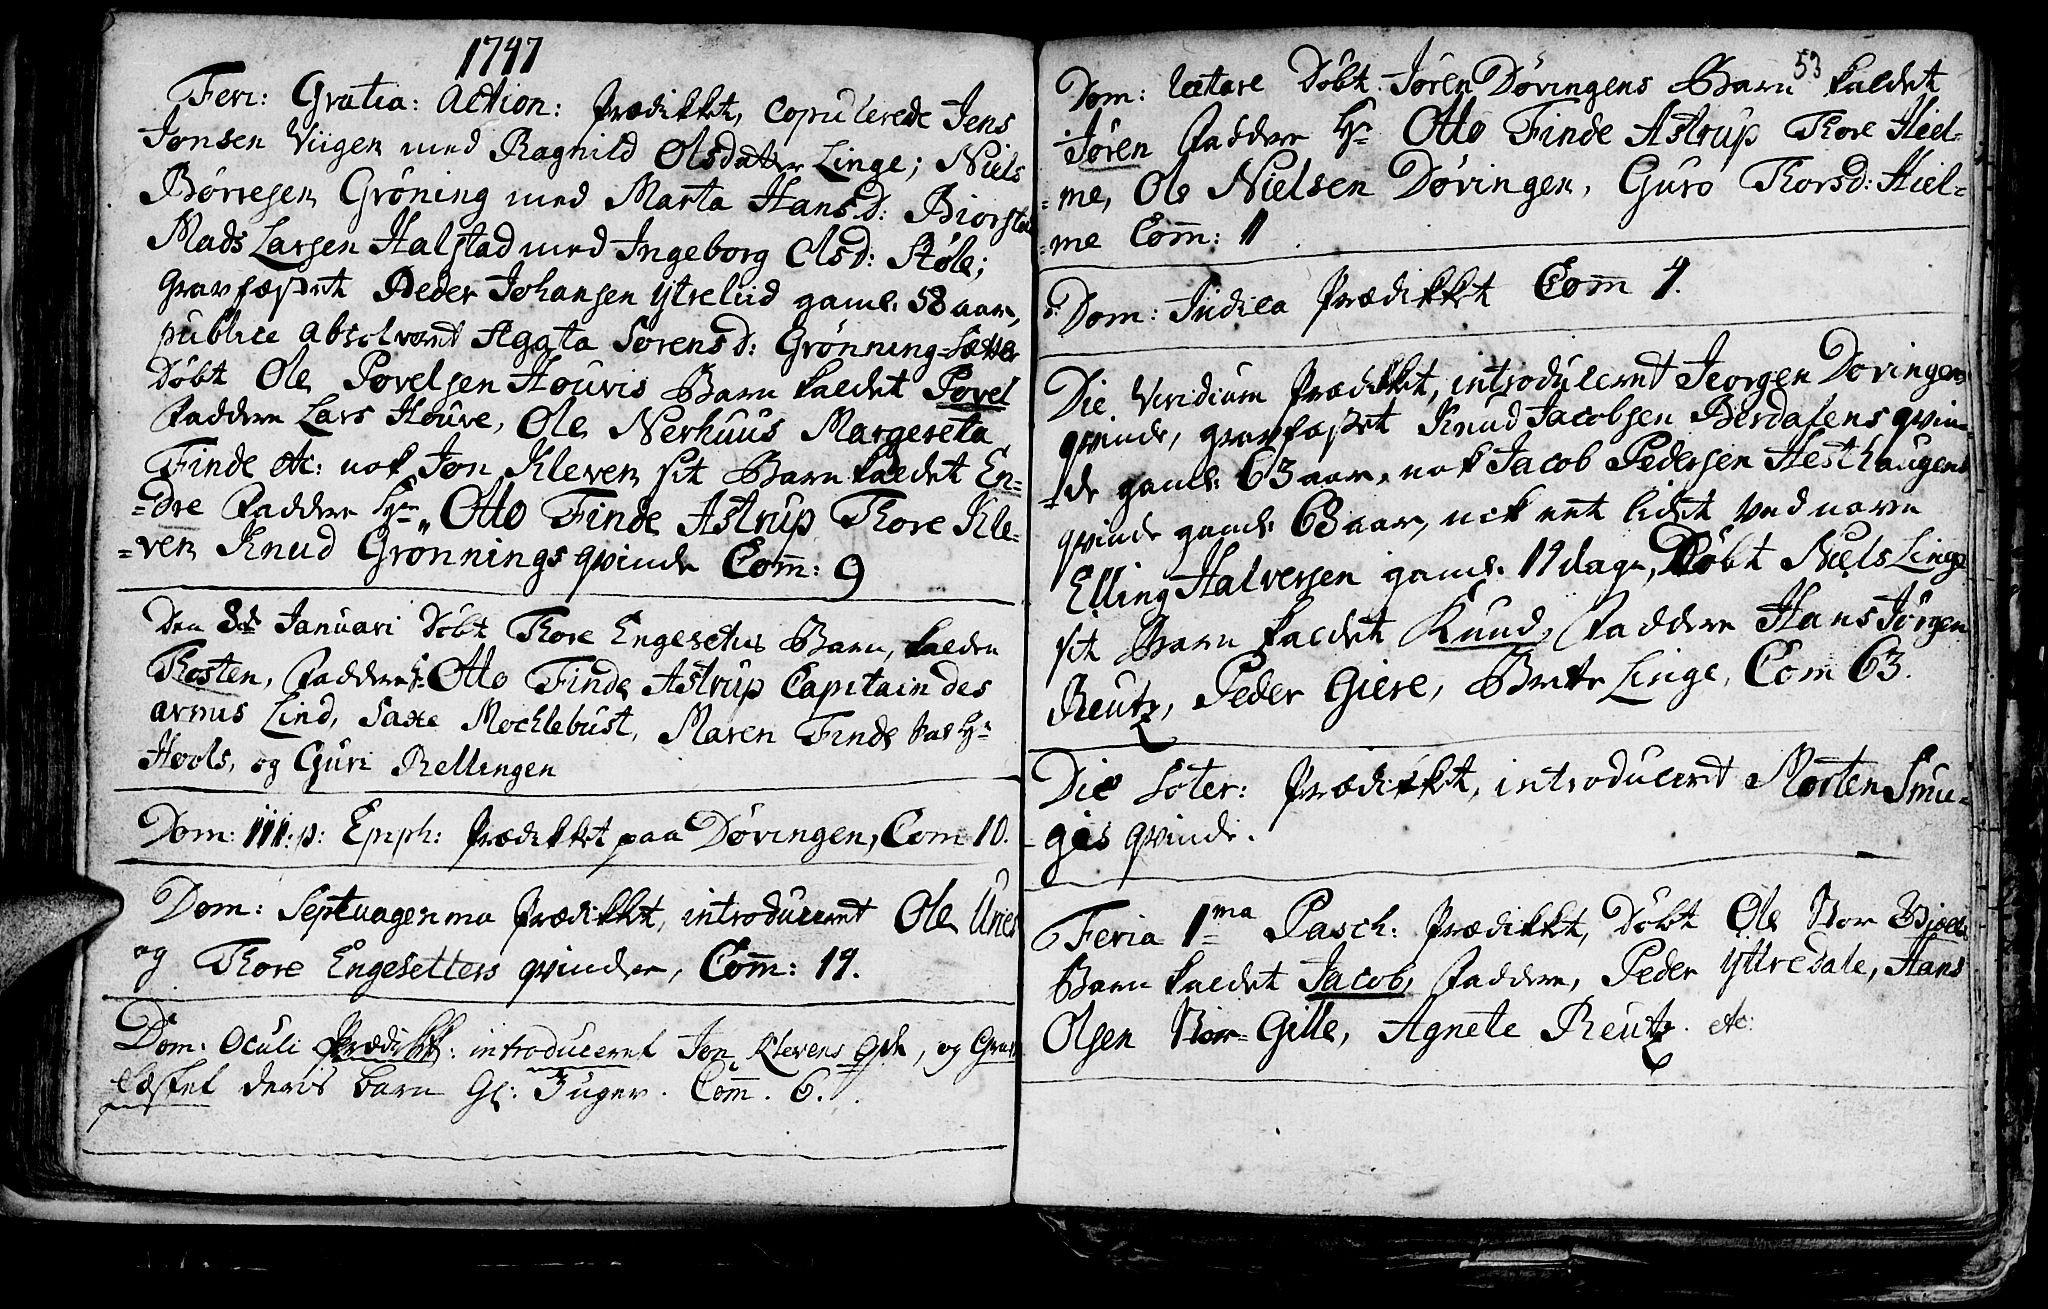 1747
Feri: Gratia: Action: Prædikket, copulerede Jens
Jonsen Viigen med Ragnild Olsdatter Linge; Niels
Börresen Gröning med Marta Hansd: Biorstad
Mads Larsen Halstad med Ingeborg Olsd: Støle;
Gravfæstet Peder Johansen ytrelid gaml: 58 aar,
publice absolveret Agata Sorensd: Grönning-Sætter
Döbt Ole Povelsen Houvis Barn kaldet Povel
Faddere Lars Houve, Ole Nerhuus Margereta
Finde etc: nok Jon Kleven sit Barn kaldet En=
=dre Faddere Hr: Otto Finde Astrup Thore Kle=
=ven Knud Grönnings qvinde Com̄: 9
Den 8de Januari Döbt Thore Engesetus Barn, kalden
Thosten, Faddere Hr: Otto Finde Astrup Capitain des
armis Lind, Saxe Mochlebust, Maren Finde hos Hr
Hools, og Guri Rellingen
Dom: III: p: Epiph: Prædikket paa Döringen, Com 10.
Dom: Septuagesima Prædikket, introduceret Ole Uries
og Thore Engesetters qvinder, Com̄: 19.
Dom: Oculi Prædikk: introduceret Jon Klevens Qde, og Grav
fæstet deris barn Gl: 3 uger. Com̄. 6.
53
Dom: lætare Döbt Jören Döringens Barn kaldet
Jören Faddere Hr Otto Finde Astrup Thore Hiel=
=me, Ole Nielsen Döringen, Guro Thorsd: Hiel=
=me Com̄: 11
Dom: Judica Prædikket Com̄ 4.
Die Viridium Prædikket, introduceret Jeorgen Doringens
qvinde, gravfæstet Knud Jacobsen Berdalens qvin=
=de gaml: 63 aar, nok Jacob Pedersen Hesthaugens
qvinde gaml: 68 aar, nok eet lidet ved navn
Elling Halversen gaml: 19 dage, Döbt Niels Linge
sit Barn kaldet Knud, Faddere Hans Jörgen
Reutz, Peder Giere, Brite Linge, Com 63.
Die Soter: Prædikket, introduceret Morten Smu=
=ges qvinde.
Feria 1ma Pasch: Prædikket, Döbt Ole Nor
Barn kaldet Jacob, Faddere, Peder Yttredale, Hans
Olsen Nor-Gille, Agnete Reutz. etc: